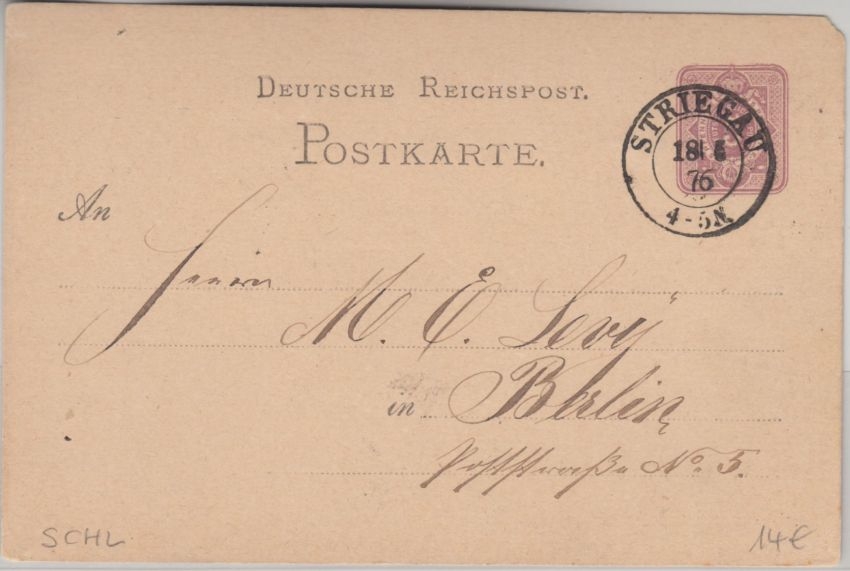 DEUTSCHE REICHSPOST.
POSTKARTE.
STRIEGAU
18 5
76
4-5N.
An
Herrn
M. E. Levÿ
in Berlin,
Poststraße No. 5.
SCHL
14€